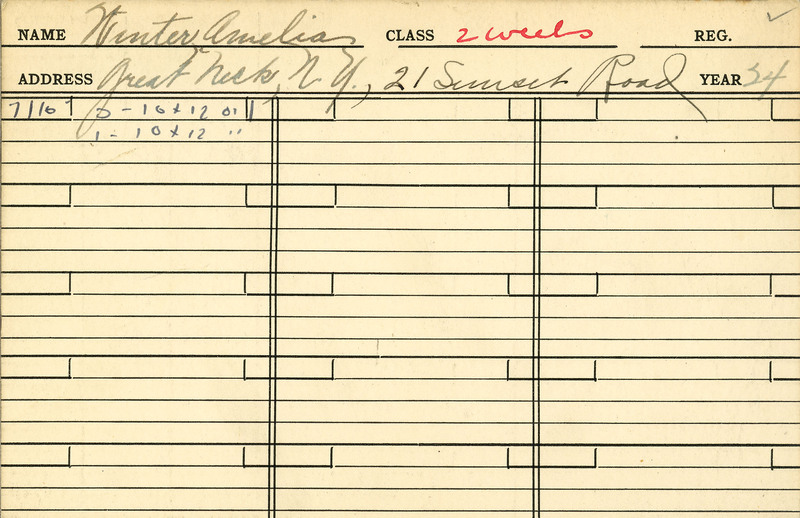 NAME Winter, Amelia CLASS 2 weeks REG. ✓
ADDRESS Great Neck, N.Y., 21 Sunset Road YEAR 24
7/10 - 10 x 12
1 - 10 x 12 "